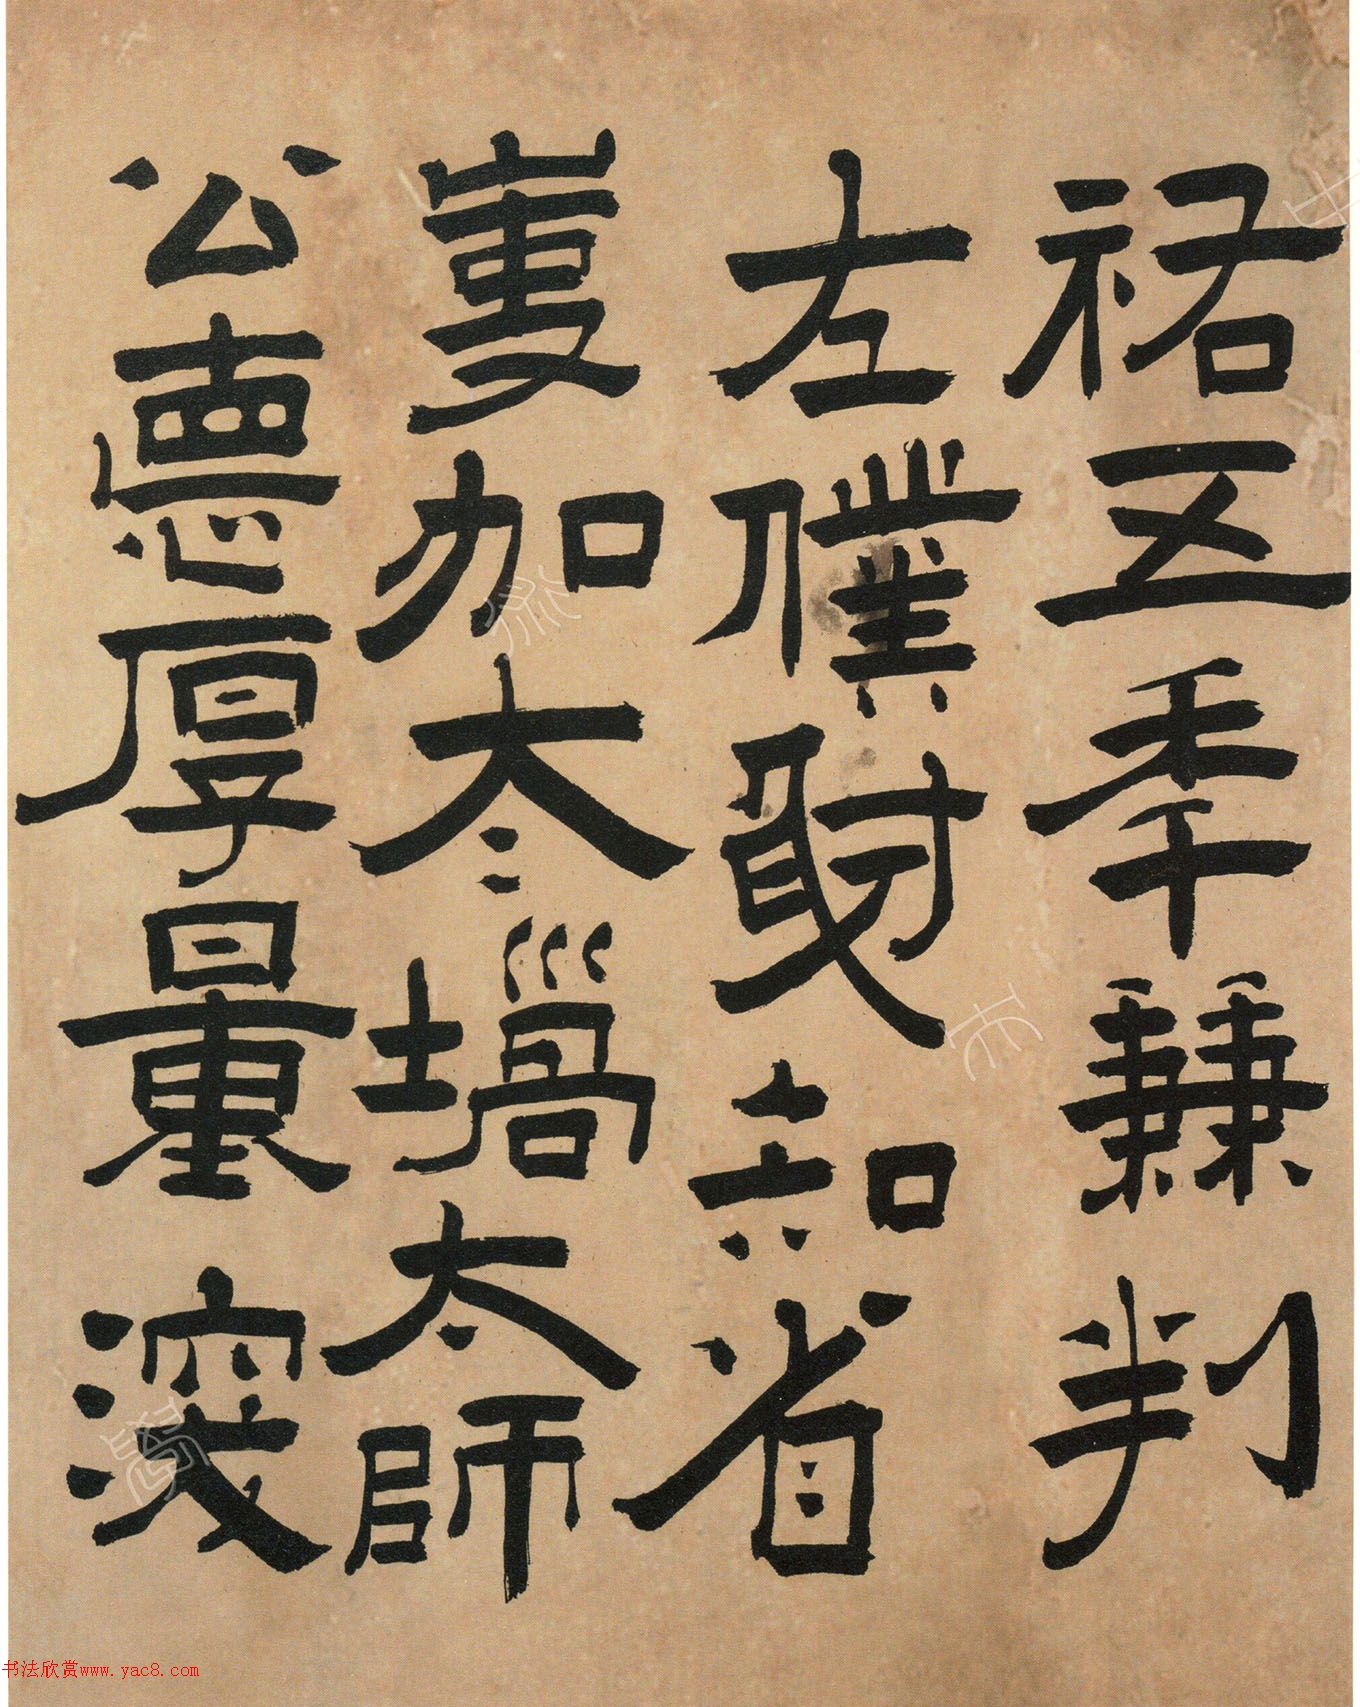 祐五秊兼判
左僕射知省
叓加太太師
公德厚量深
书法欣赏www.yac8.com